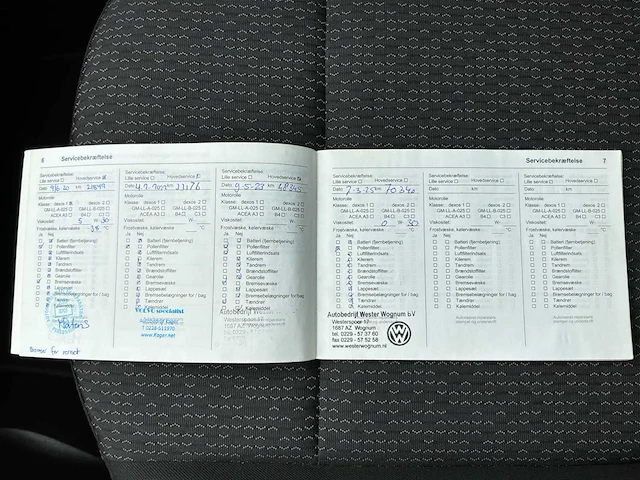 6 Servicebekræftelse
Servicebekræftelse 7
Lille service Hovedservice
Dato 9/6.20 km 21849
Motorolie
Klasse: dexos 1 dexos 2
GM-LL-A-025 GM-LL-B-025
ACEA A3 B4 C3
Viskositet: 5 W: 30
Frostvæske, kølervæske -38 °C
Ja Nej
Batteri (fjernbetjening)
Pollenfilter
Luftfilterindsats
Kilerem
Tandrem
Brændstoffilter
Gearolie
Bremsevæske
Lappesæt
Bremsebelægninger for / bag
Tændrør
Bremser for renset
Lille service Hovedservice
Dato km 33176
Motorolie
Klasse: dexos 1 dexos 2
GM-LL-A-025 GM-LL-B-025
ACEA A3 B4 C3
Viskositet: W:
Frostvæske, kølervæske °C
Ja Nej
Batteri (fjernbetjening)
Pollenfilter
Luftfilterindsats
Kilerem
Tandrem
Brændstoffilter
Gearolie
Bremsevæske
Lappesæt
Bremsebelægninger for / bag
Tændrør
VOLVO specialist
T 0228-511970
www.Kager.net
Lille service Hovedservice
Dato 9-5-23 km 48345
Motorolie
Klasse: dexos 1 dexos 2
GM-LL-A-025 GM-LL-B-025
ACEA A3 B4 C3
Viskositet: W:
Frostvæske, kølervæske °C
Ja Nej
Batteri (fjernbetjening)
Pollenfilter
Luftfilterindsats
Kilerem
Tandrem
Brændstoffilter
Gearolie
Bremsevæske
Lappesæt
Bremsebelægninger for / bag
Tændrør
Autobedrijf Wester Wognum
Westerspoor 17
1687 AZ Wognum
Lille service Hovedservice
Dato 7-3-25 km 70340
Motorolie
Klasse: dexos 1 dexos 2
GM-LL-A-025 GM-LL-B-025
ACEA A3 B4 C3
Viskositet: 0 W: 30
Frostvæske, kølervæske °C
Ja Nej
Batteri (fjernbetjening)
Pollenfilter
Luftfilterindsats
Kilerem
Tandrem
Brændstoffilter
Gearolie
Bremsevæske
Lappesæt
Bremsebelægninger for / bag
Tændrør
Kølemiddel
Autobedrijf Wester Wognum b.V
Westerspoor 17
1687 AZ Wognum
tel. 0229 - 57 37 60
fax 0229 - 57 52 58
www.westerwognum.nl
Lille service Hovedservice
Dato km
Motorolie
Klasse: dexos 1 dexos 2
GM-LL-A-025 GM-LL-B-025
ACEA A3 B4 C3
Viskositet: W:
Frostvæske, kølervæske °C
Ja Nej
Batteri (fjernbetjening)
Pollenfilter
Luftfilterindsats
Kilerem
Tandrem
Brændstoffilter
Gearolie
Bremsevæske
Lappesæt
Bremsebelægninger for / bag
Tændrør
Kølemiddel
Lille service Hovedservice
Dato km
Motorolie
Klasse: dexos 1 dexos 2
GM-LL-A-025 GM-LL-B-025
ACEA A3 B4 C3
Viskositet: W:
Frostvæske, kølervæske °C
Ja Nej
Batteri (fjernbetjening)
Pollenfilter
Luftfilterindsats
Kilerem
Tandrem
Brændstoffilter
Gearolie
Bremsevæske
Lappesæt
Bremsebelægninger for / bag
Tændrør
Kølemiddel